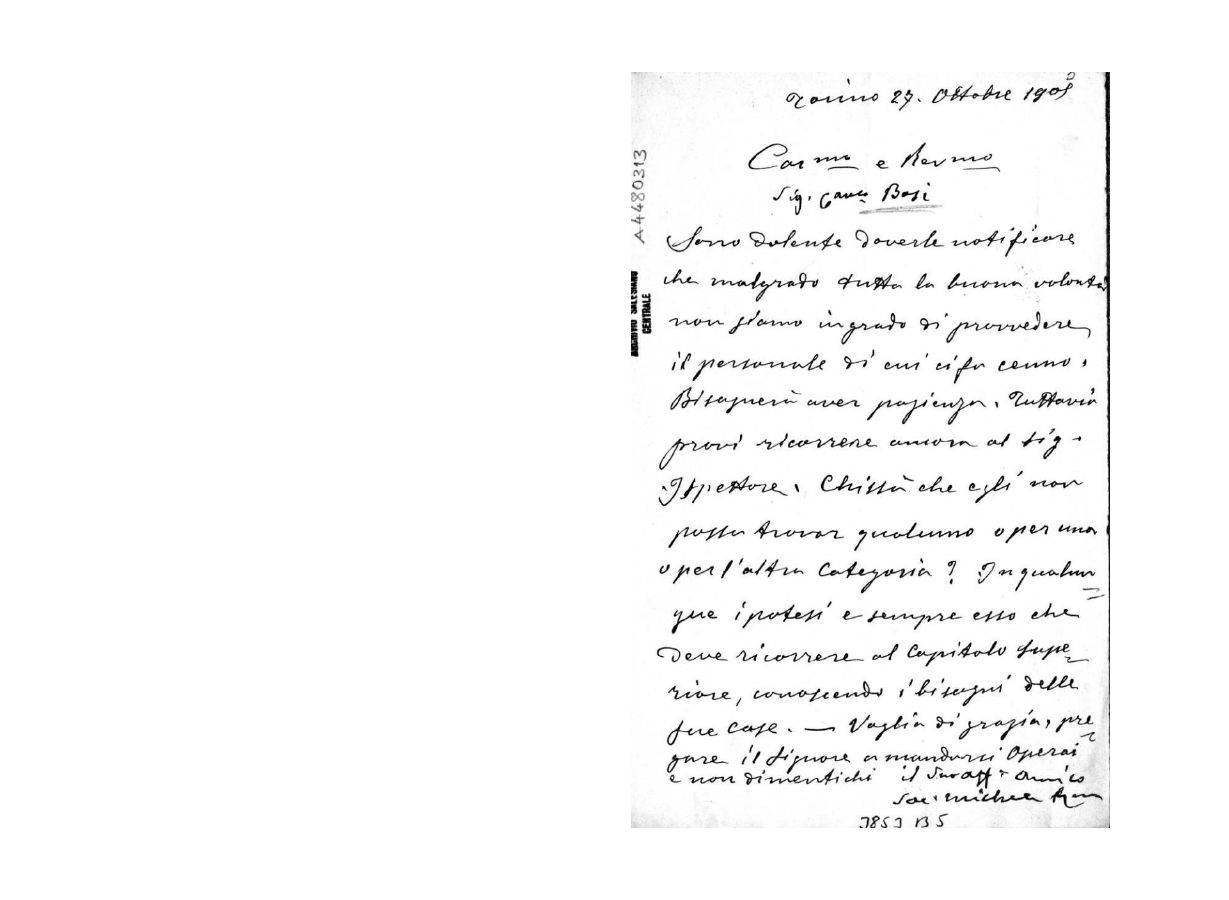 Torino 27. Ottobre 1905
Carmo e Revmo
Sig. Canco Bosi
Sono dolente doverle notificare
che malgrado tutta la buona volontà
non siamo in grado di provvedere
il personale di cui ci fa cenno.
Bisognerà aver pazienza. Tuttavia
provi ricorrere ancora al Sig.
Ispettore. Chissà che egli non
possa trovar qualcuno o per una
o per l'altra Categoria? In qualun
que ipotesi e sempre esso che
deve ricorrere al Capitolo Supe
riore, conoscendo i bisogni delle
sue Case. — Voglia di grazia, pre
gare il Signore a mandarci Operai
e non dimentichi il Suo aff. Amico
Sac. Michele Rua
A4480313
ARCHIVIO SALESIANO
CENTRALE
3853 B5